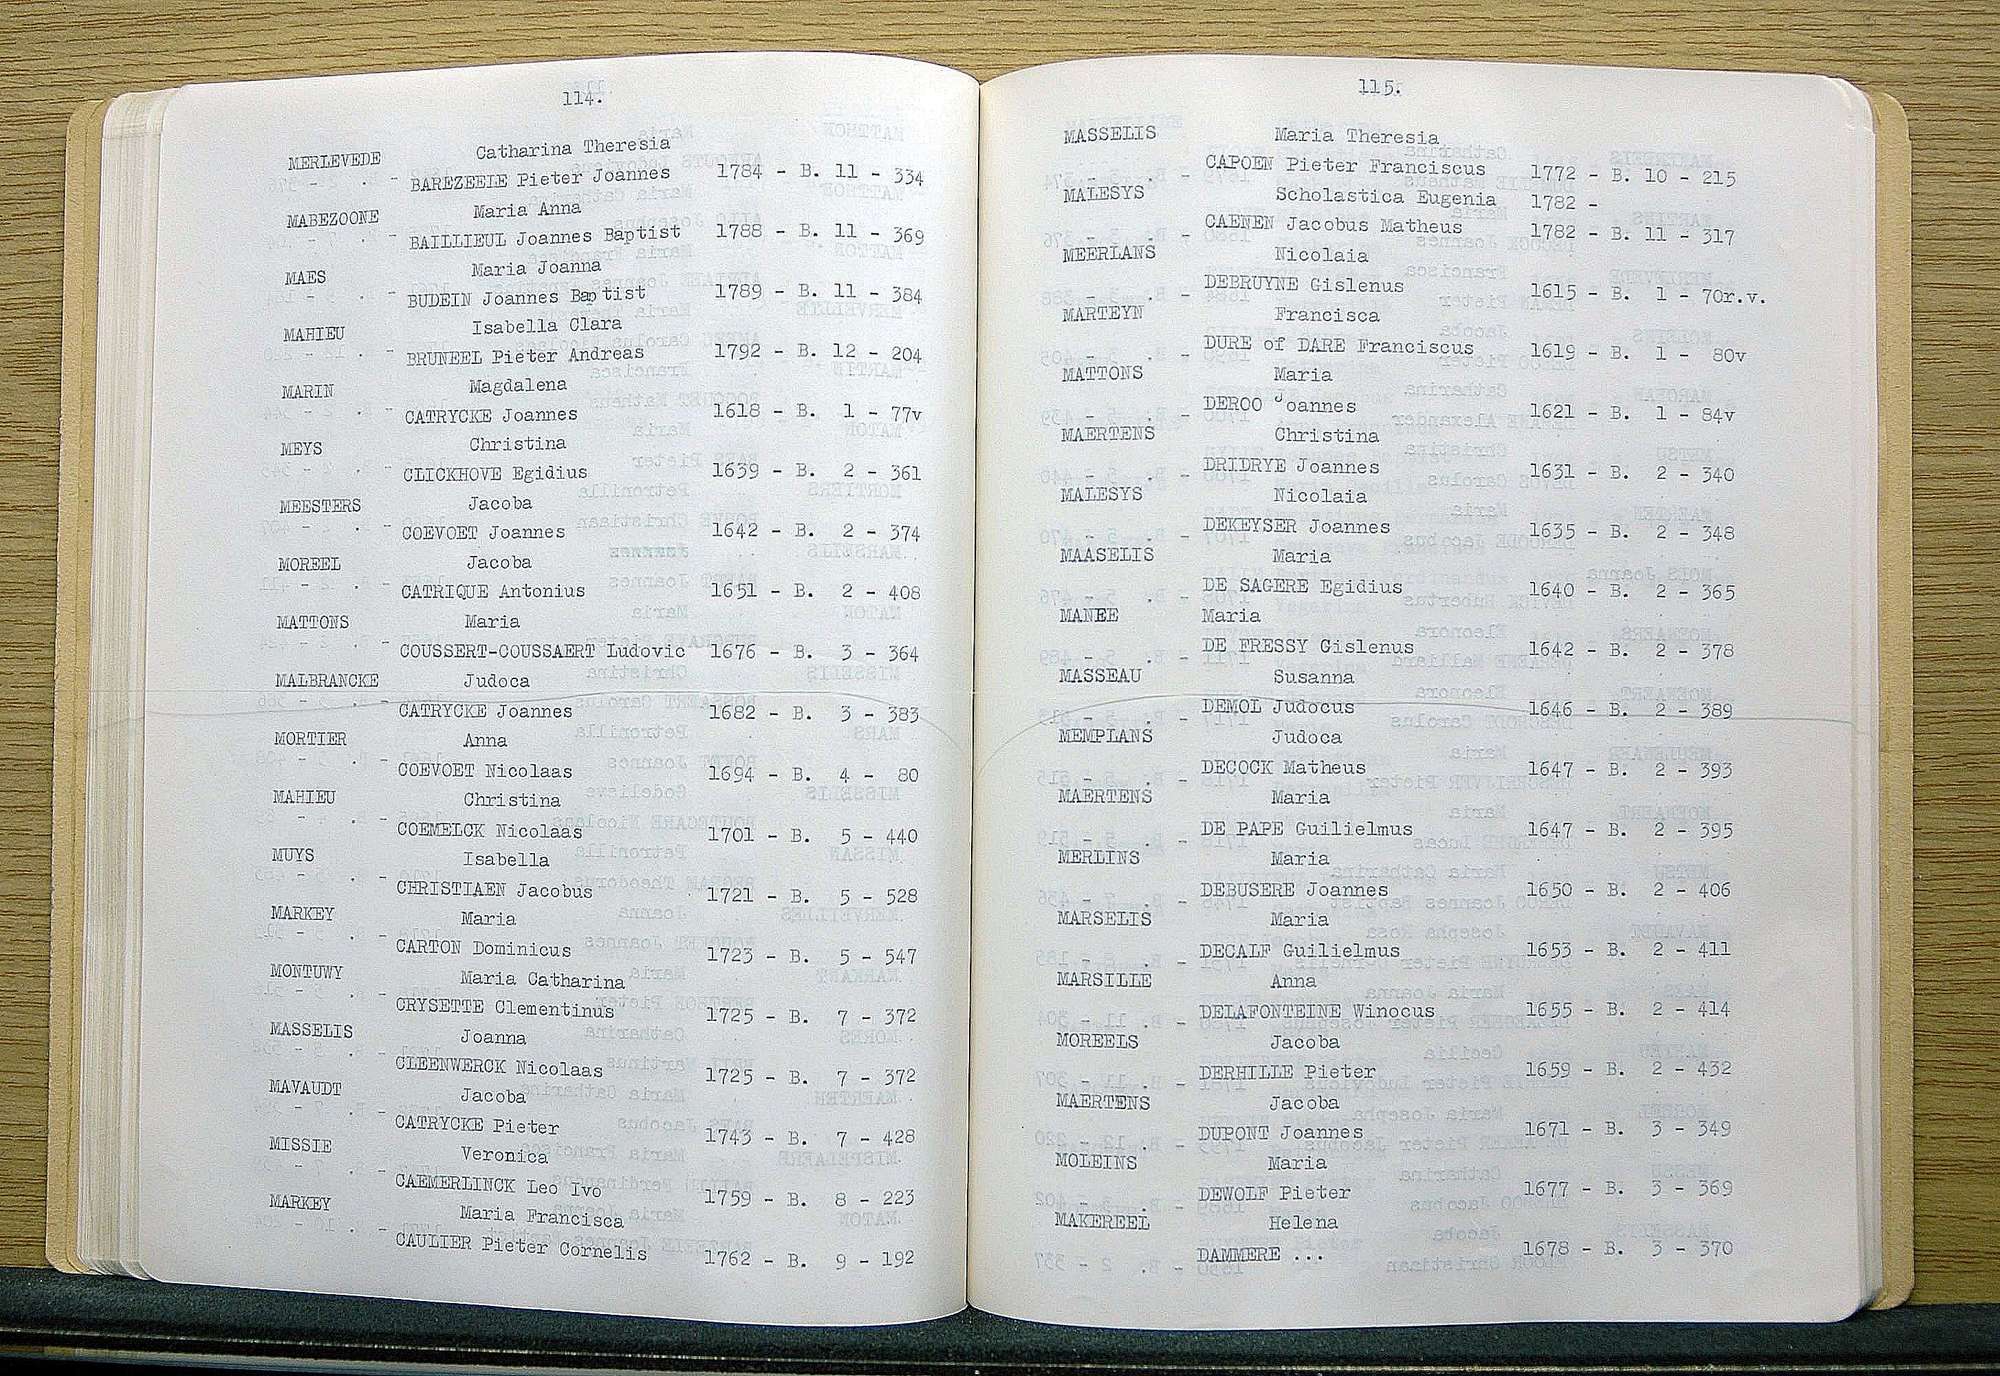 114.
MERLEVEDE Catharina Theresia
BAREZEELE Pieter Joannes 1784 - B. 11 - 334
MABEZOONE Maria Anna
BAILLIEUL Joannes Baptist 1788 - B. 11 - 369
MAES Maria Joanna
BUDEIN Joannes Baptist 1789 - B. 11 - 384
MAHIEU Isabella Clara
BRUNEEL Pieter Andreas 1792 - B. 12 - 204
MARIN Magdalena
CATRYCKE Joannes 1618 - B. 1 - 77v
MEYS Christina
CLICKHOVE Egidius 1639 - B. 2 - 361
MEESTERS Jacoba
COEVOET Joannes 1642 - B. 2 - 374
MOREEL Jacoba
CATRIQUE Antonius 1651 - B. 2 - 408
MATTONS Maria
COUSSERT-COUSSAERT Ludovic 1676 - B. 3 - 364
MALBRANCKE Judoca
CATRYCKE Joannes 1682 - B. 3 - 383
MORTIER Anna
COEVOET Nicolaas 1694 - B. 4 - 80
MAHIEU Christina
COEMELCK Nicolaas 1701 - B. 5 - 440
MUYS Isabella
CHRISTIAEN Jacobus 1721 - B. 5 - 528
MARKEY Maria
CARTON Dominicus 1723 - B. 5 - 547
MONTUWY Maria Catharina
CRYSETTE Clementinus 1725 - B. 7 - 372
MASSELIS Joanna
CLEENWERCK Nicolaas 1725 - B. 7 - 372
MAVAUDT Jacoba
CATRYCKE Pieter 1743 - B. 7 - 428
MISSIE Veronica
CAEMERLINCK Leo Ivo 1759 - B. 8 - 223
MARKEY Maria Francisca
CAULIER Pieter Cornelis 1762 - B. 9 - 192
115.
MASSELIS Maria Theresia
CAPOEN Pieter Franciscus 1772 - B. 10 - 215
MALESYS Scholastica Eugenia 1782 -
CAENEN Jacobus Matheus 1782 - B. 11 - 317
MEERLANS Nicolaia
DEBRUYNE Gislenus 1615 - B. 1 - 70r.v.
MARTEYN Francisca
DURE of DARE Franciscus 1619 - B. 1 - 80v
MATTONS Maria
DEROO Joannes 1621 - B. 1 - 84v
MAERTENS Christina
DRIDRYE Joannes 1631 - B. 2 - 340
MALESYS Nicolaia
DEKEYSER Joannes 1635 - B. 2 - 348
MAASELIS Maria
DE SAGERE Egidius 1640 - B. 2 - 365
MANEE Maria
DE FRESSY Gislenus 1642 - B. 2 - 378
MASSEAU Susanna
DEMOL Judocus 1646 - B. 2 - 389
MEMPLANS Judoca
DECOCK Matheus 1647 - B. 2 - 393
MAERTENS Maria
DE PAPE Guilielmus 1647 - B. 2 - 395
MERLINS Maria
DEBUSERE Joannes 1650 - B. 2 - 406
MARSELIS Maria
DECALF Guilielmus 1653 - B. 2 - 411
MARSILLE Anna
DELAFONTEINE Winocus 1655 - B. 2 - 414
MOREELS Jacoba
DERHILLE Pieter 1659 - B. 2 - 432
MAERTENS Jacoba
DUPONT Joannes 1671 - B. 3 - 349
MOLEINS Maria
DEWOLF Pieter 1677 - B. 3 - 369
MAKEREEL Helena
DAMMERE ... 1678 - B. 3 - 370